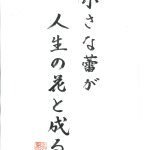 小さな蕾が
人生の花と成る